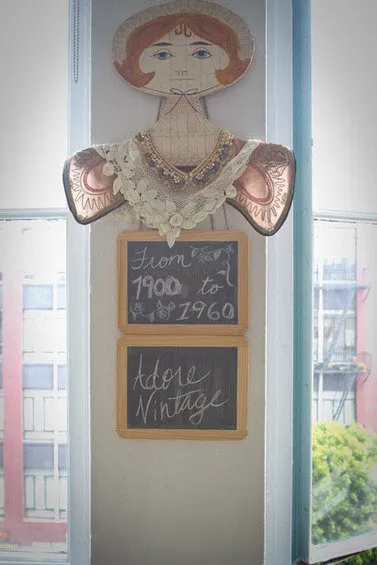 From
1900 to
1960
Adore
Vintage